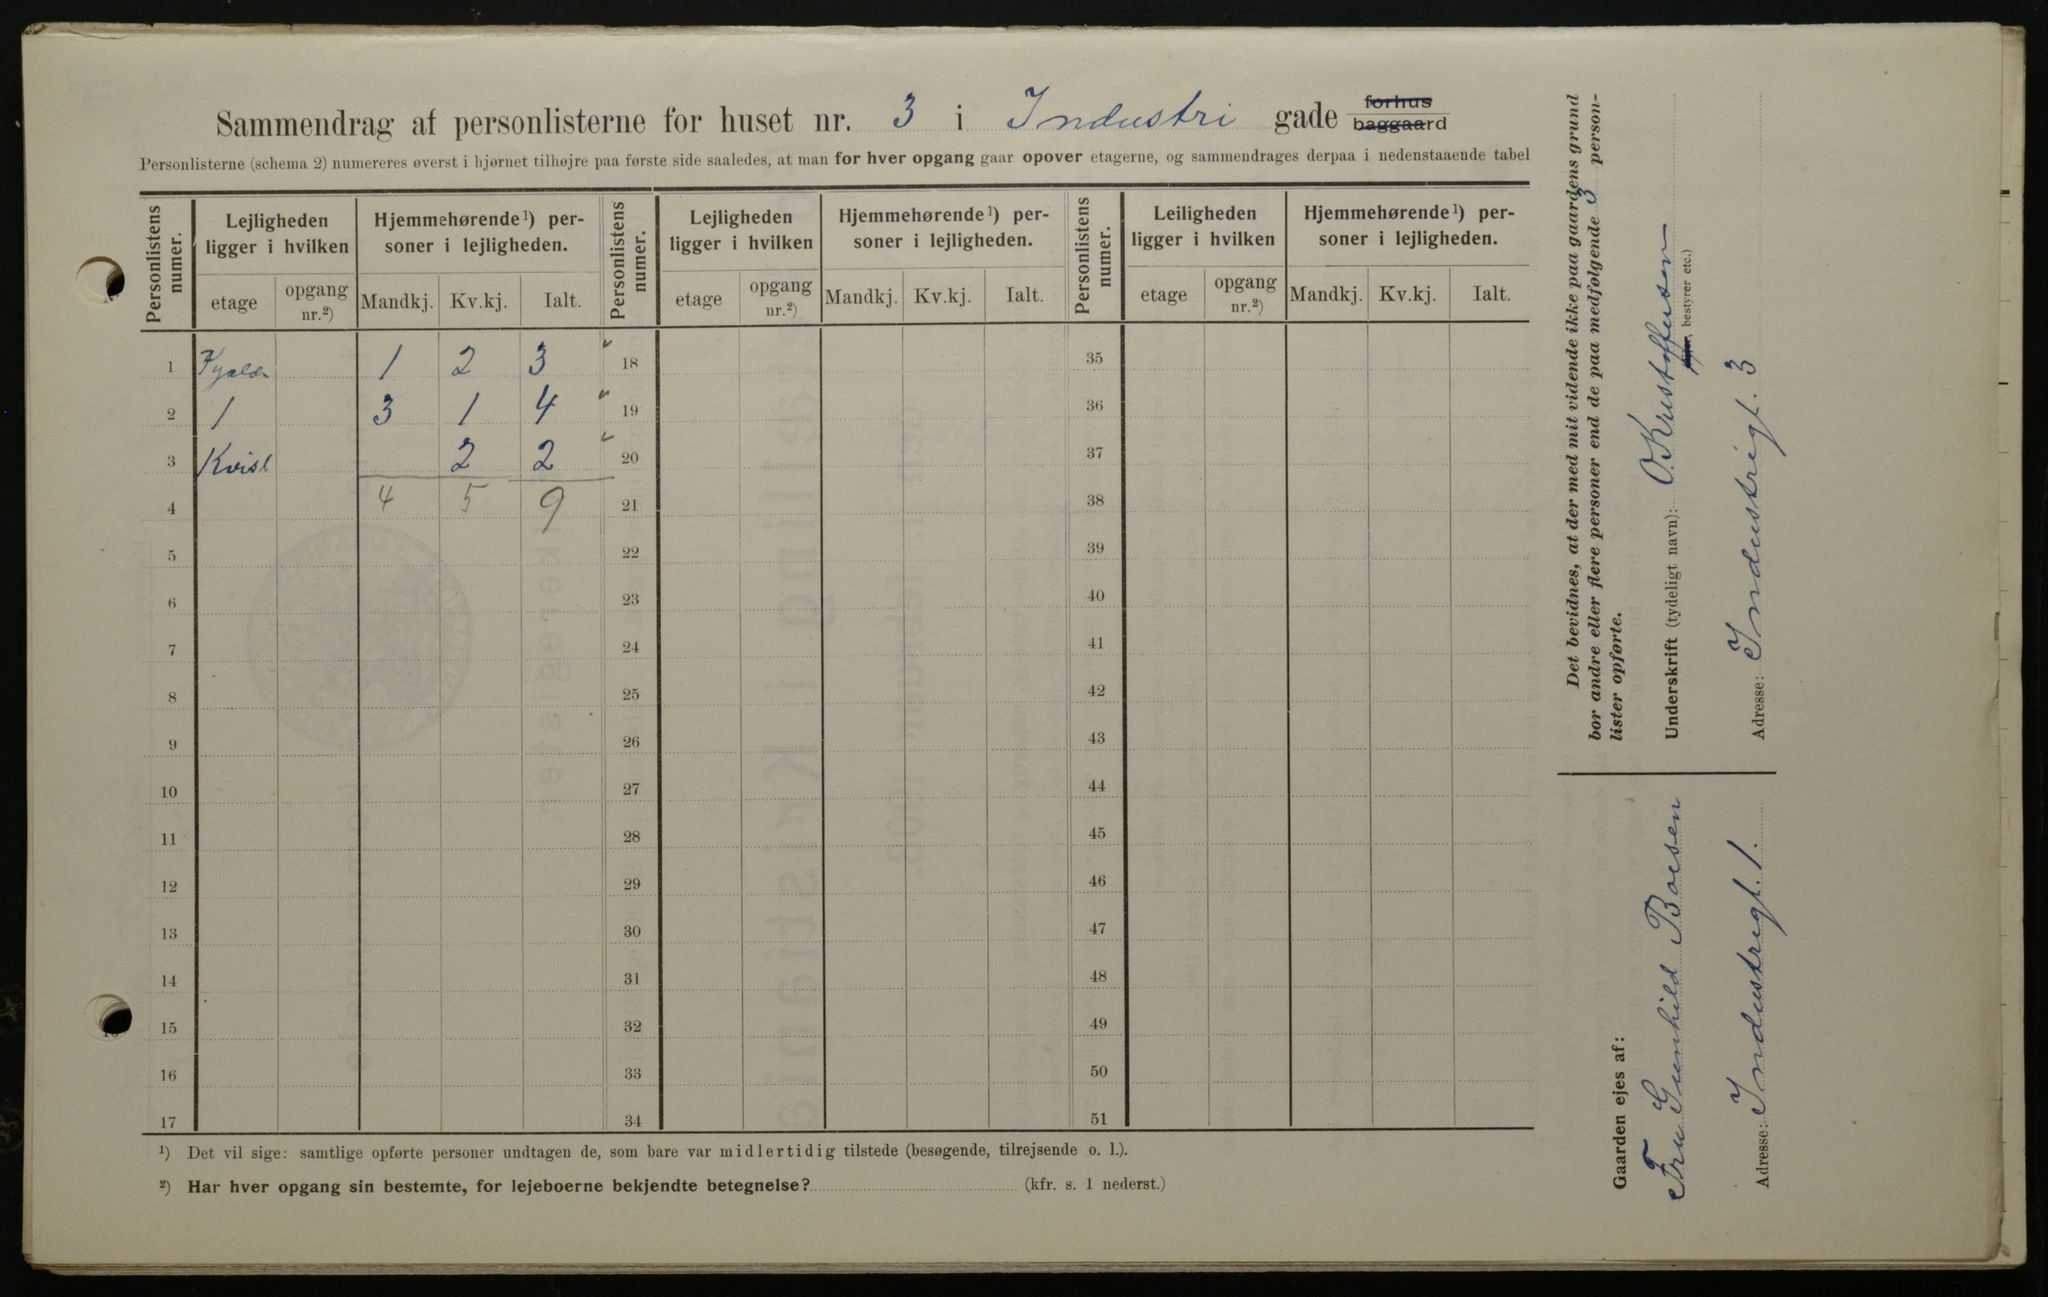 Sammendrag af personlisterne for huset nr. 3 i Industri gade forhus baggaard
Personlisterne (schema 2) numereres øverst i hjørnet tilhøjre paa første side saaledes, at man for hver opgang gaar opover etagerne, og sammendrages derpaa i nedenstaaende tabel
Personlistens numer. Lejligheden ligger i hvilken Hjemmehørende¹) personer i lejligheden. Personlistens numer. Lejligheden ligger i hvilken Hjemmehørende¹) personer i lejligheden. Personlistens numer. Leiligheden ligger i hvilken Hjemmehørende¹) personer i lejligheden.
etage opgang nr.²) Mandkj. Kv.kj. Ialt. etage opgang nr.²) Mandkj. Kv.kj. Ialt. etage opgang nr.²) Mandkj. Kv.kj. Ialt.
1 1 2 3 18 35
2 1 3 1 4 19 36
3 Kvist 2 2 20 37
4 4 5 9 21 38
5 22 39
6 23 40
7 24 41
8 25 42
9 26 43
10 27 44
11 28 45
12 29 46
13 30 47
14 31 48
15 32 49
16 33 50
17 34 51
¹) Det vil sige: samtlige opførte personer undtagen de, som bare var midlertidig tilstede (besøgende, tilrejsende o. l.).
²) Har hver opgang sin bestemte, for lejeboerne bekjendte betegnelse? (kfr. s. 1 nederst.)
Det bevidnes, at der med mit vidende ikke paa gaardens grund
bor andre eller flere personer end de paa medfølgende 3 person-
lister opførte.
Underskrift (tydeligt navn): O. Kristoffersen
bestyrer etc.)
Adresse: Industrigt. 3
Gaarden ejes af:
Fru Gunhild Boesen
Adresse: Industrigt. 1.